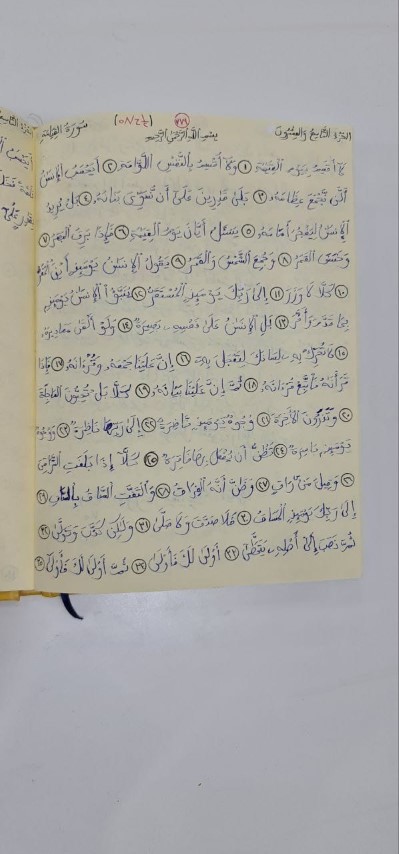 الجزء التاسع والعشرون
بسم الله الرحمن الرحيم
سورة القيامة
لا أقسم بيوم القيمة ١ ولا أقسم بالنفس اللوامة ٢ أيحسب الإنسن
ألن نجمع عظامه ٣ بلى قدرين على أن نسوى بنانه ٤ بل يريد
الإنسن ليفجر أمامه ٥ يسئل أيان يوم القيمة ٦ فإذا برق البصر ٧
وخسف القمر ٨ وجمع الشمس والقمر ٩ يقول الإنسن يومئذ أين المفر
١٠ كلا لا وزر ١١ إلى ربك يومئذ المستقر ١٢ ينبؤا الإنسن يومئذ
بما قدم وأخر ١٣ بل الإنسن على نفسه بصيرة ١٤ ولو ألقى معاذيره
١٥ لا تحرك به لسانك لتعجل به ١٦ إن علينا جمعه وقرءانه ١٧ فإذا
قرأنه فاتبع قرءانه ١٨ ثم إن علينا بيانه ١٩ كلا بل تحبون العاجلة
٢٠ وتذرون الأخرة ٢١ وجوه يومئذ ناضرة ٢٢ إلى ربها ناظرة ٢٣ ووجوه
يومئذ باسرة ٢٤ تظن أن يفعل بها فاقرة ٢٥ كلا إذا بلغت التراقى
٢٦ وقيل من راق ٢٧ وظن أنه الفراق ٢٨ والتفت الساق بالساق ٢٩
إلى ربك يومئذ المساق ٣٠ فلا صدق ولا صلى ٣١ ولكن كذب وتولى ٣٢
ثم ذهب إلى أهله يتمطى ٣٣ أولى لك فأولى ٣٤ ثم أولى لك فأولى ٣٥